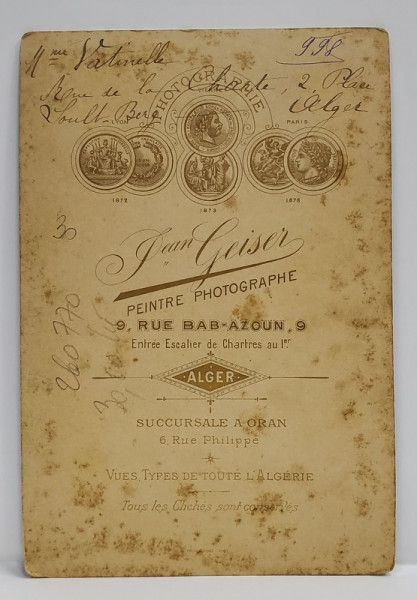 998
Mme
Rue de la Charte, 2, Place
Soult-Berg Alger
PHOTOGRAPHIE
LYON
PARIS
1872
1873
1878
30
260 770
Jean Geiser
PEINTRE PHOTOGRAPHE
9, RUE BAB-AZOUN, 9
Entrée Escalier de Chartres au 1er
ALGER
SUCCURSALE A ORAN
6, Rue Philippe
VUES, TYPES DE TOUTE L'ALGÉRIE
Tous les Clichés sont conservés